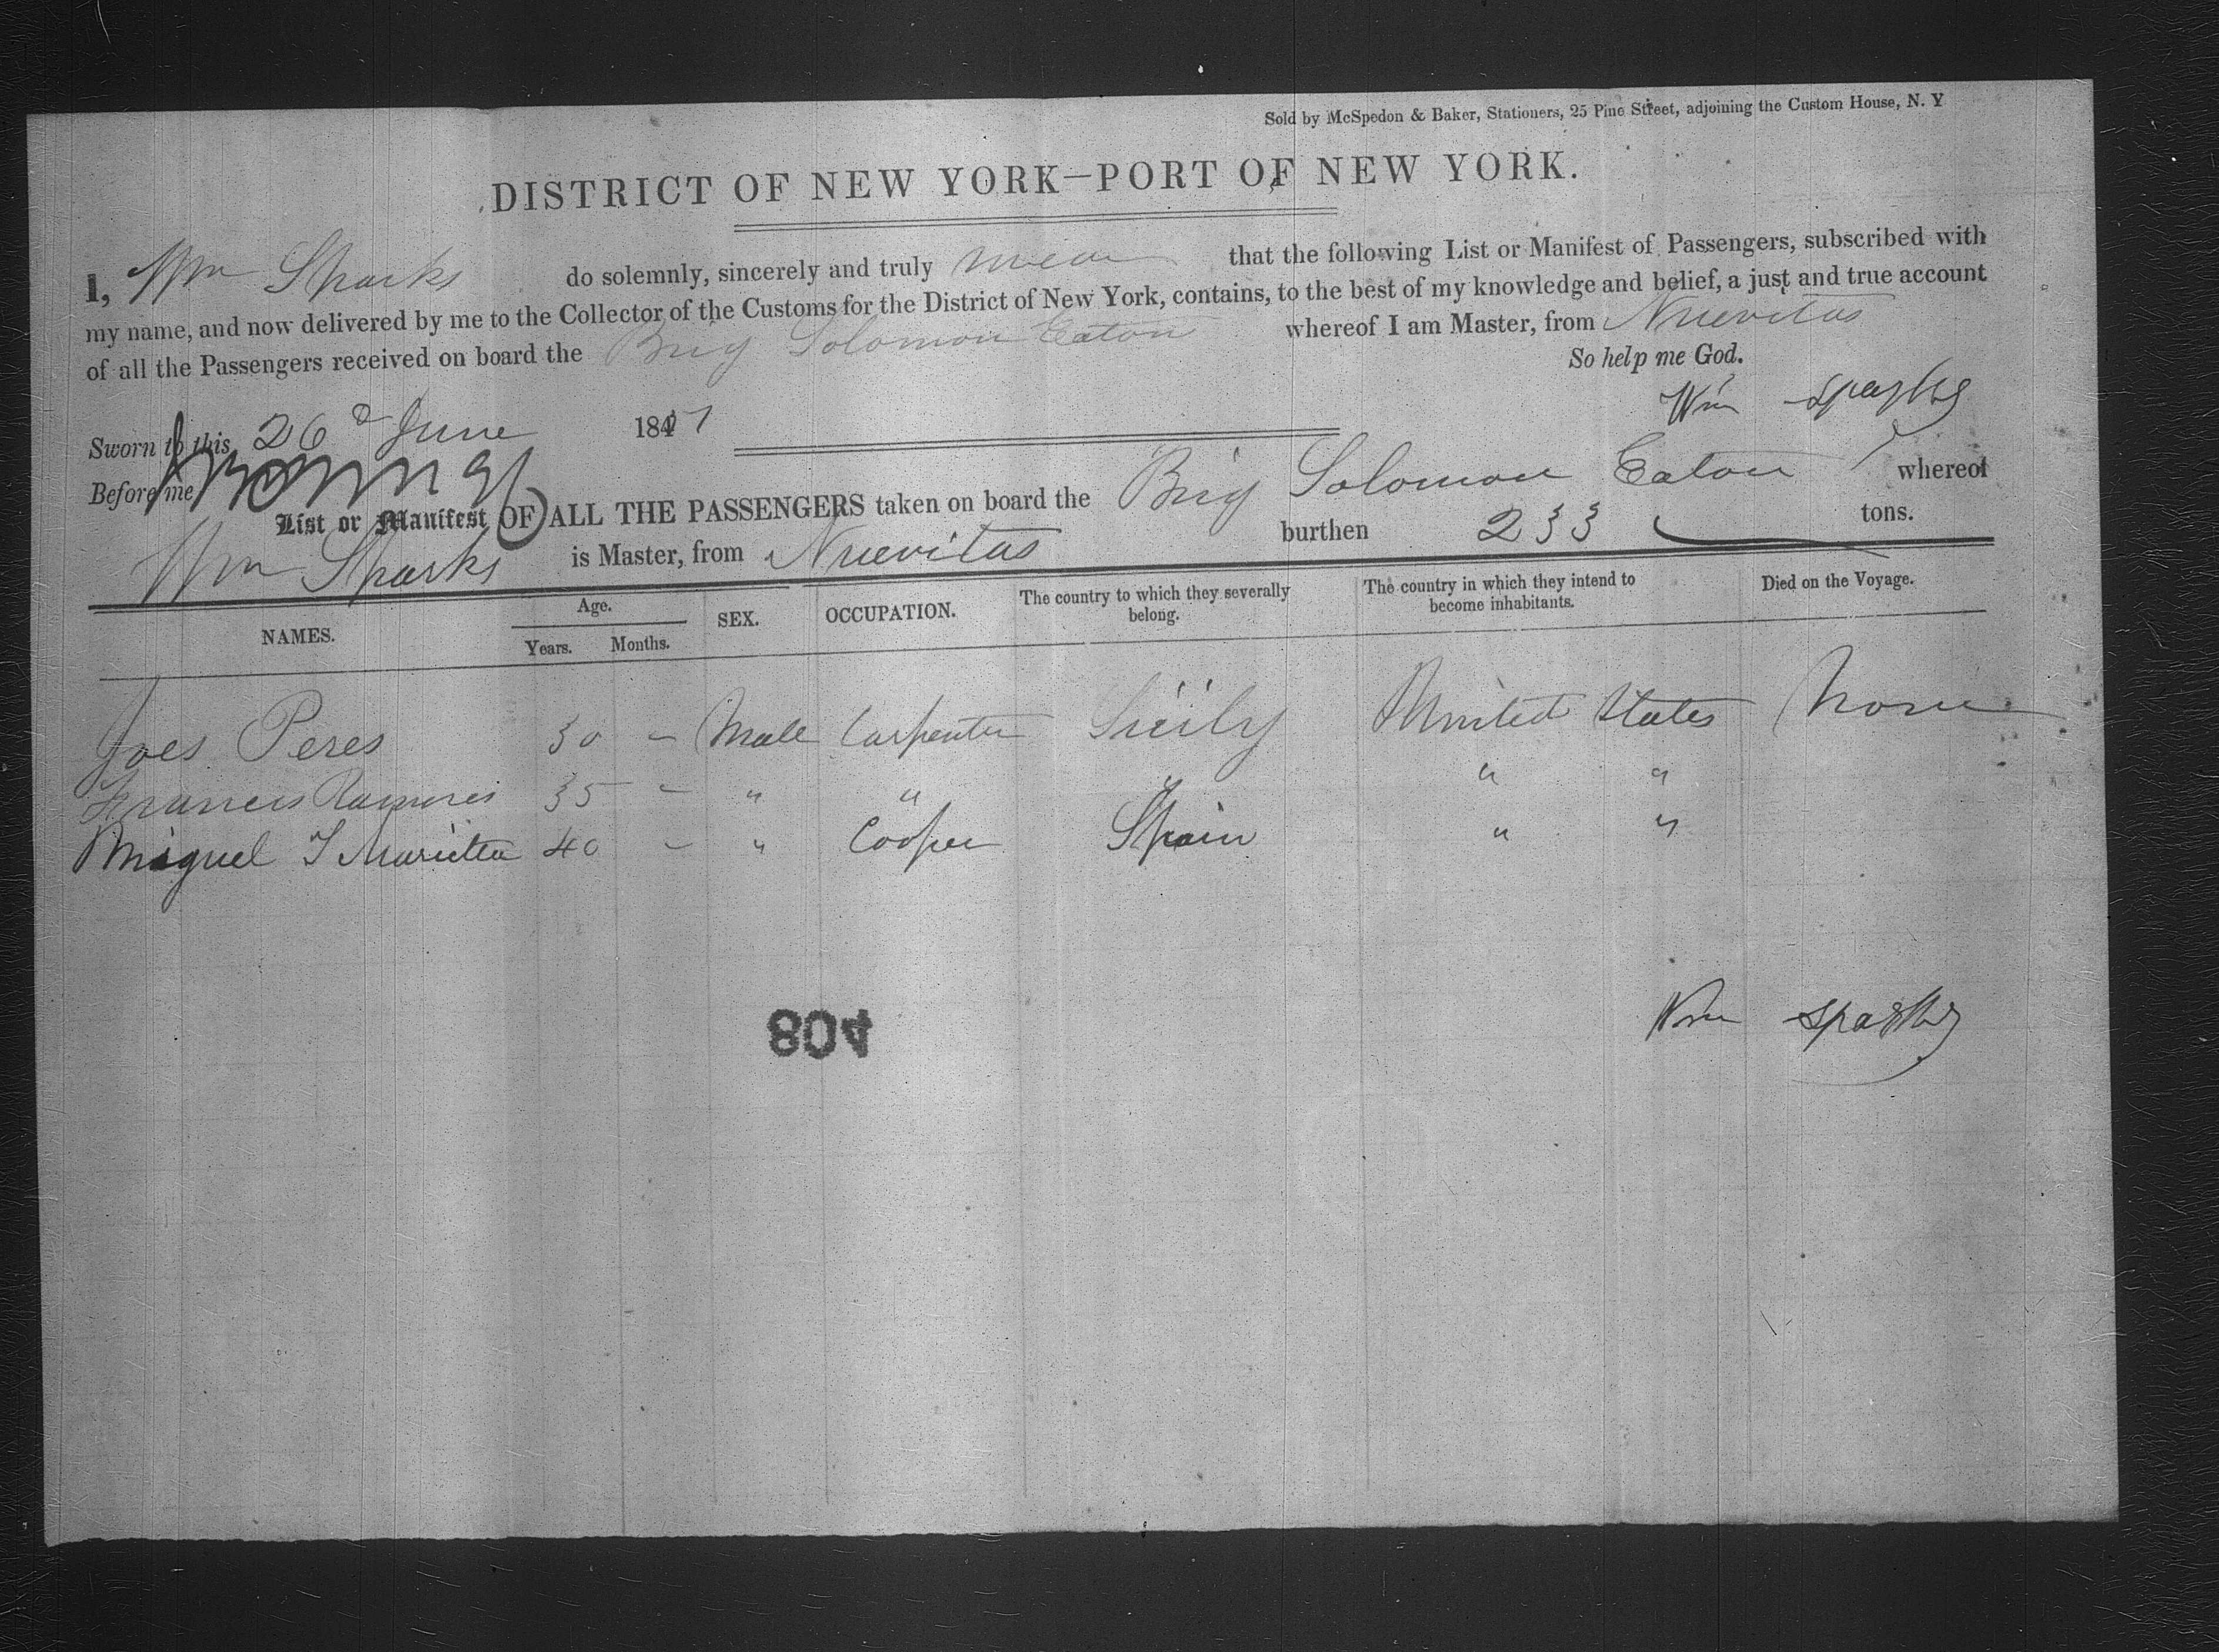 Sold by McSpedon & Baker, Stationers, 25 Pine Street, adjoining the Custom House, N. Y
DISTRICT OF NEW YORK—PORT OF NEW YORK.
I, Wm Sparks do solemnly, sincerely and truly swear that the following List or Manifest of Passengers, subscribed with
my name, and now delivered by me to the Collector of the Customs for the District of New York, contains, to the best of my knowledge and belief, a just and true account
of all the Passengers received on board the Brig Solomon Eaton whereof I am Master, from Nuevitas
So help me God.
Wm Sparks
Sworn to this 26 June 1847
Before me
List or Manifest OF ALL THE PASSENGERS taken on board the Brig Solomon Eaton whereof
Wm Sparks is Master, from Nuevitas burthen 233 tons.
NAMES. Age. Years. Months. SEX. OCCUPATION. The country to which they severally belong. The country in which they intend to become inhabitants. Died on the Voyage.
Joes Peres 30 - Male Carpenter Sicily United States None
Francis Ramires 35 - " " " " "
Miguel T Marietta 40 - " Cooper Spain " "
Wm Sparks
804